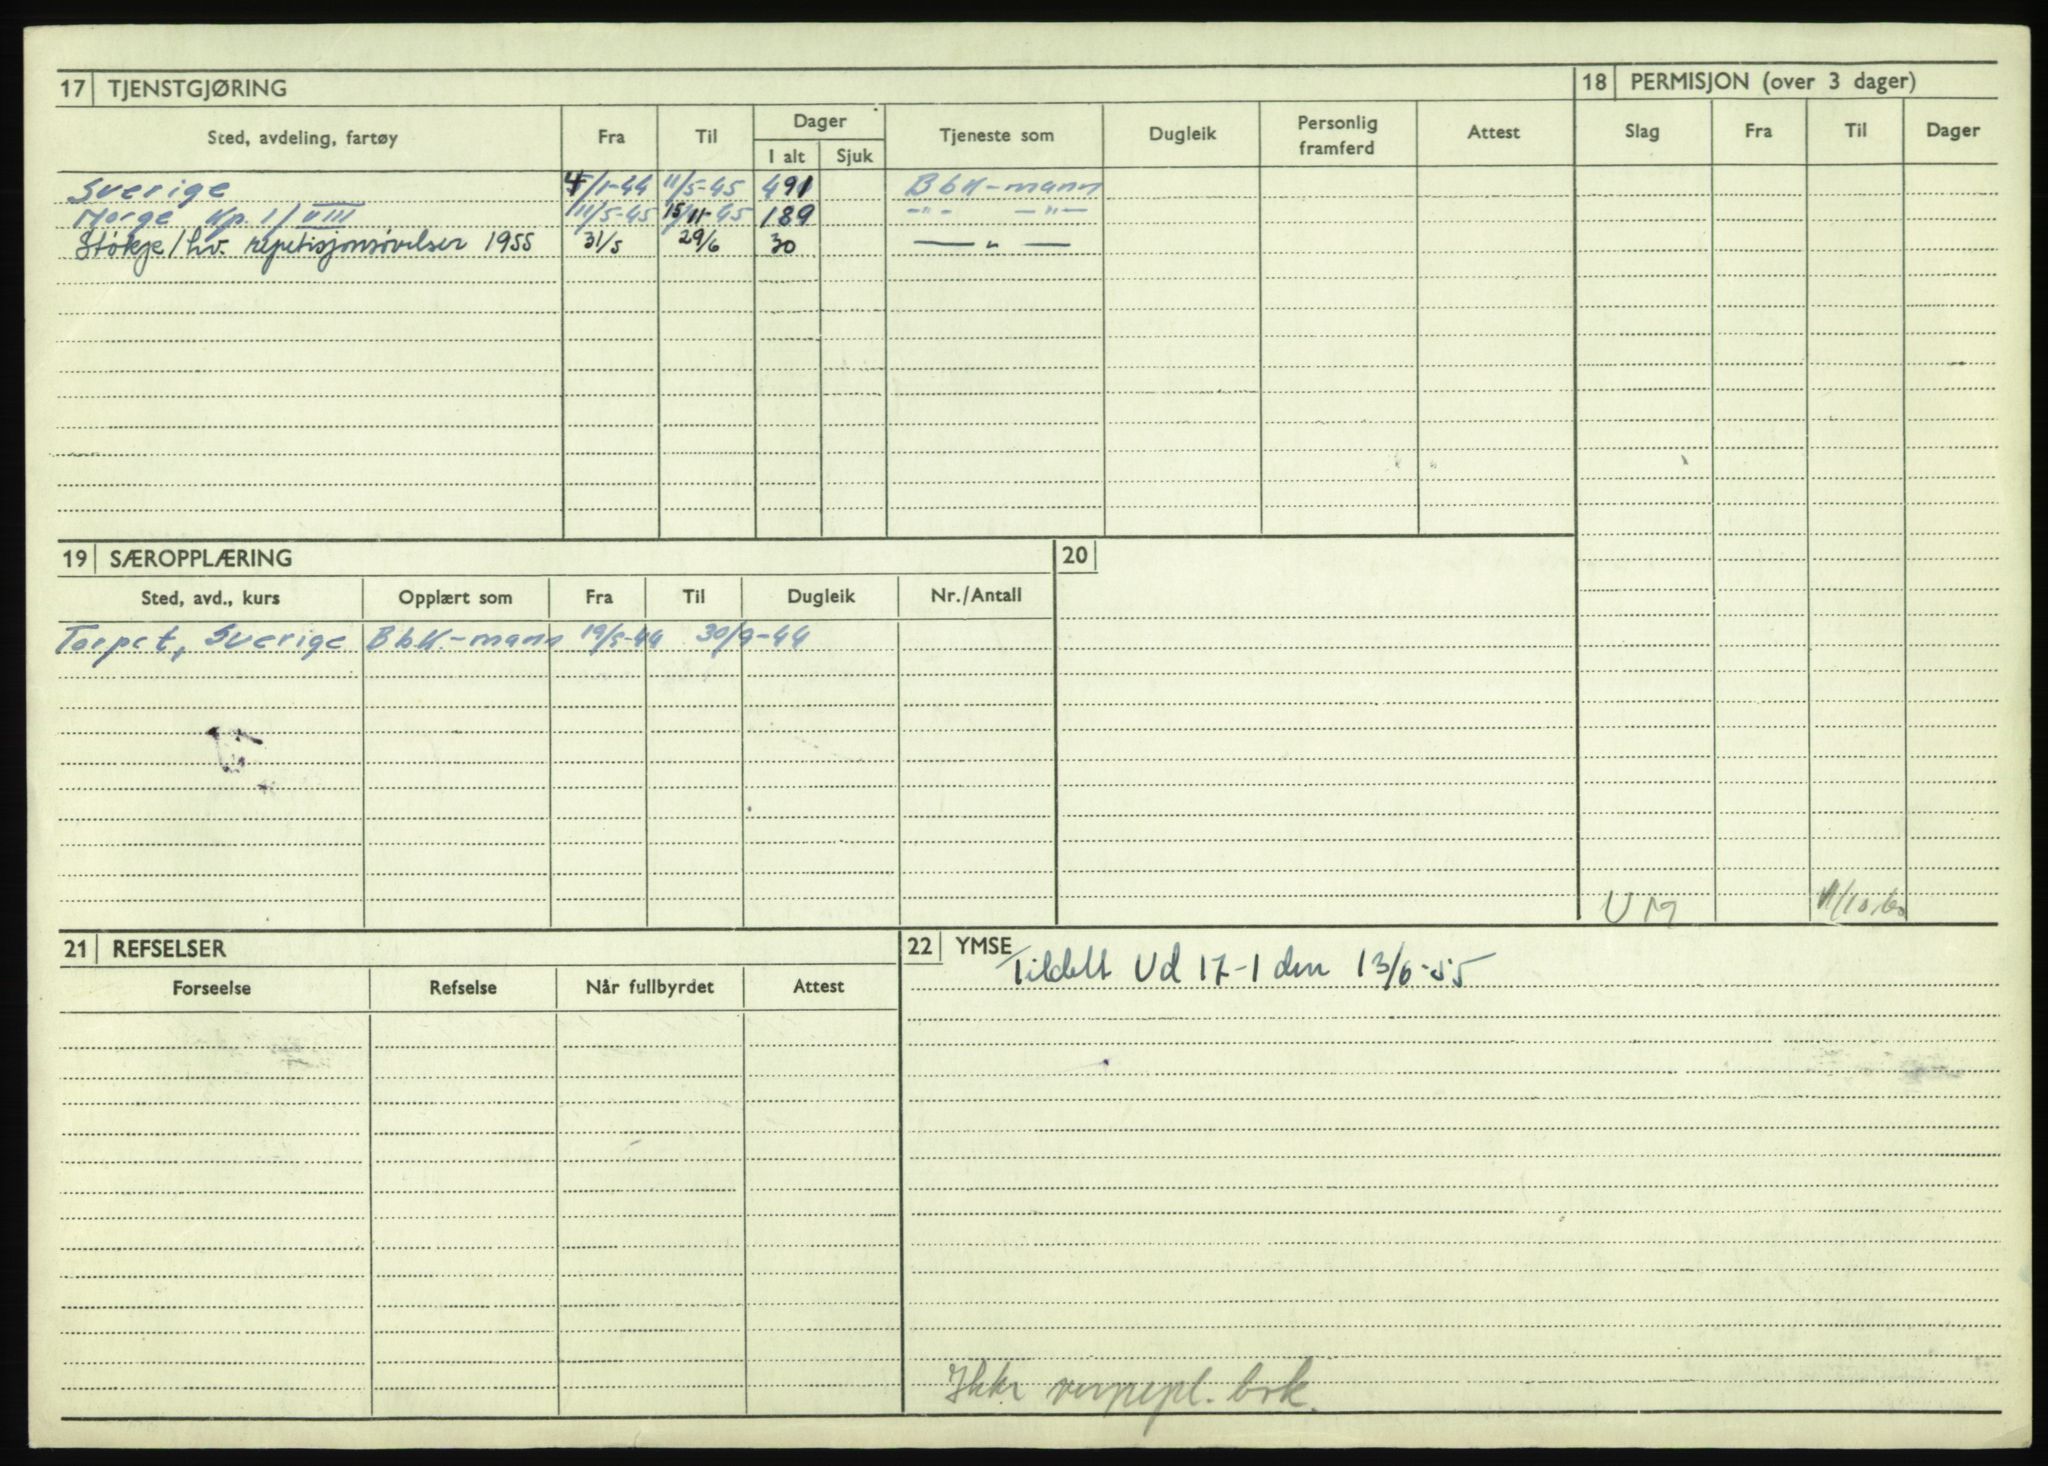 17 TJENSTGJØRING
Sted, avdeling, fartøy Fra Til Dager I alt Sjuk Tjeneste som Dugleik Personlig framferd Attest
Sverige 4/1-44 11/5-45 491 BbK-mann
Norge Kp. 1/VIII 11/5-45 15/11-45 189 -"- -"-
Støkje/hv. repetisjonsøvelser 1955 31/5 29/6 30 — " —
18 PERMISJON (over 3 dager)
Slag Fra Til Dager
UM 11/10.60
19 SÆROPPLÆRING
Sted, avd., kurs Opplært som Fra Til Dugleik Nr./Antall
Torpet, Sverige BbK.-mann 19/5-44 30/9-44
20
21 REFSELSER
Forseelse Refselse Når fullbyrdet Attest
22 YMSE
Tildelt Ud 17-1 den 13/6-55
Ikke vernepl. bok.